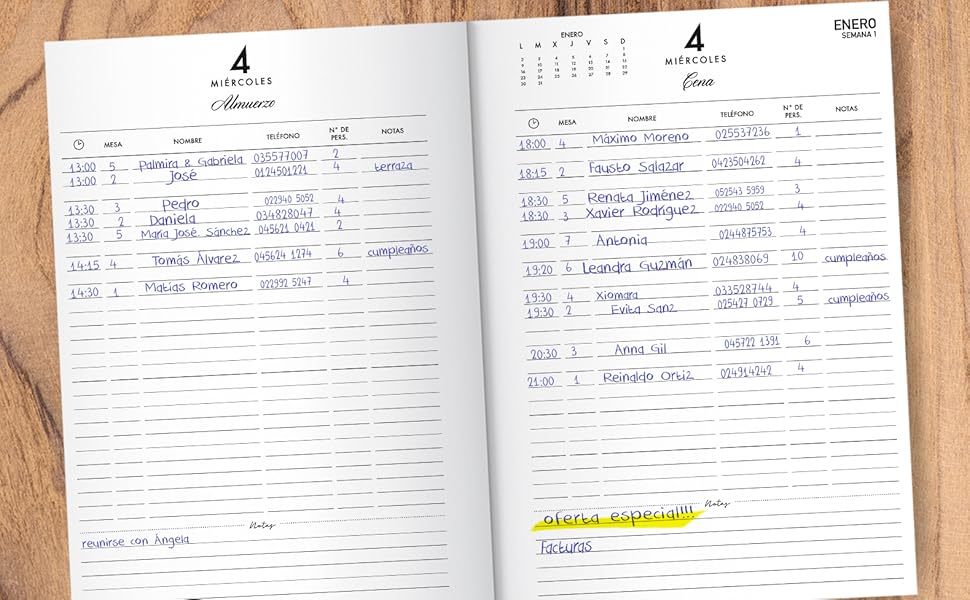 4
MIÉRCOLES
Almuerzo
MESA NOMBRE TELÉFONO N° DE PERS. NOTAS
13:00 5 Palmira & Gabriela 035577007 2
13:00 2 José 0124501221 4 terraza
13:30 3 Pedro 022940 5052 4
13:30 2 Daniela 034828047 4
13:30 5 María José. Sánchez 045621 0421 2
14:15 4 Tomás Álvarez 045624 1274 6 cumpleaños
14:30 1 Matías Romero 022992 5247 4
Notas
reunirse con Ángela
ENERO
L M X J V S D
1
2 3 4 5 6 7 8
9 10 11 12 13 14 15
16 17 18 19 20 21 22
23 24 25 26 27 28 29
30 31
4
MIÉRCOLES
Cena
ENERO
SEMANA 1
MESA NOMBRE TELÉFONO N° DE PERS. NOTAS
18:00 4 Máximo Moreno 025537236 1
18:15 2 Fausto Salazar 0423504262 4
18:30 5 Renata Jiménez 052543 5959 3
18:30 3 Xavier Rodríguez 022940 5052 4
19:00 7 Antonia 0244875753 4
19:20 6 Leandra Guzmán 024838069 10 cumpleaños
19:30 4 Xiomara 033528744 4
19:30 2 Evita Sanz 025427 0729 5 cumpleaños
20:30 3 Anna Gil 045722 1391 6
21:00 1 Reinaldo Ortiz 024914242 4
Notas
oferta especial!!!
Facturas